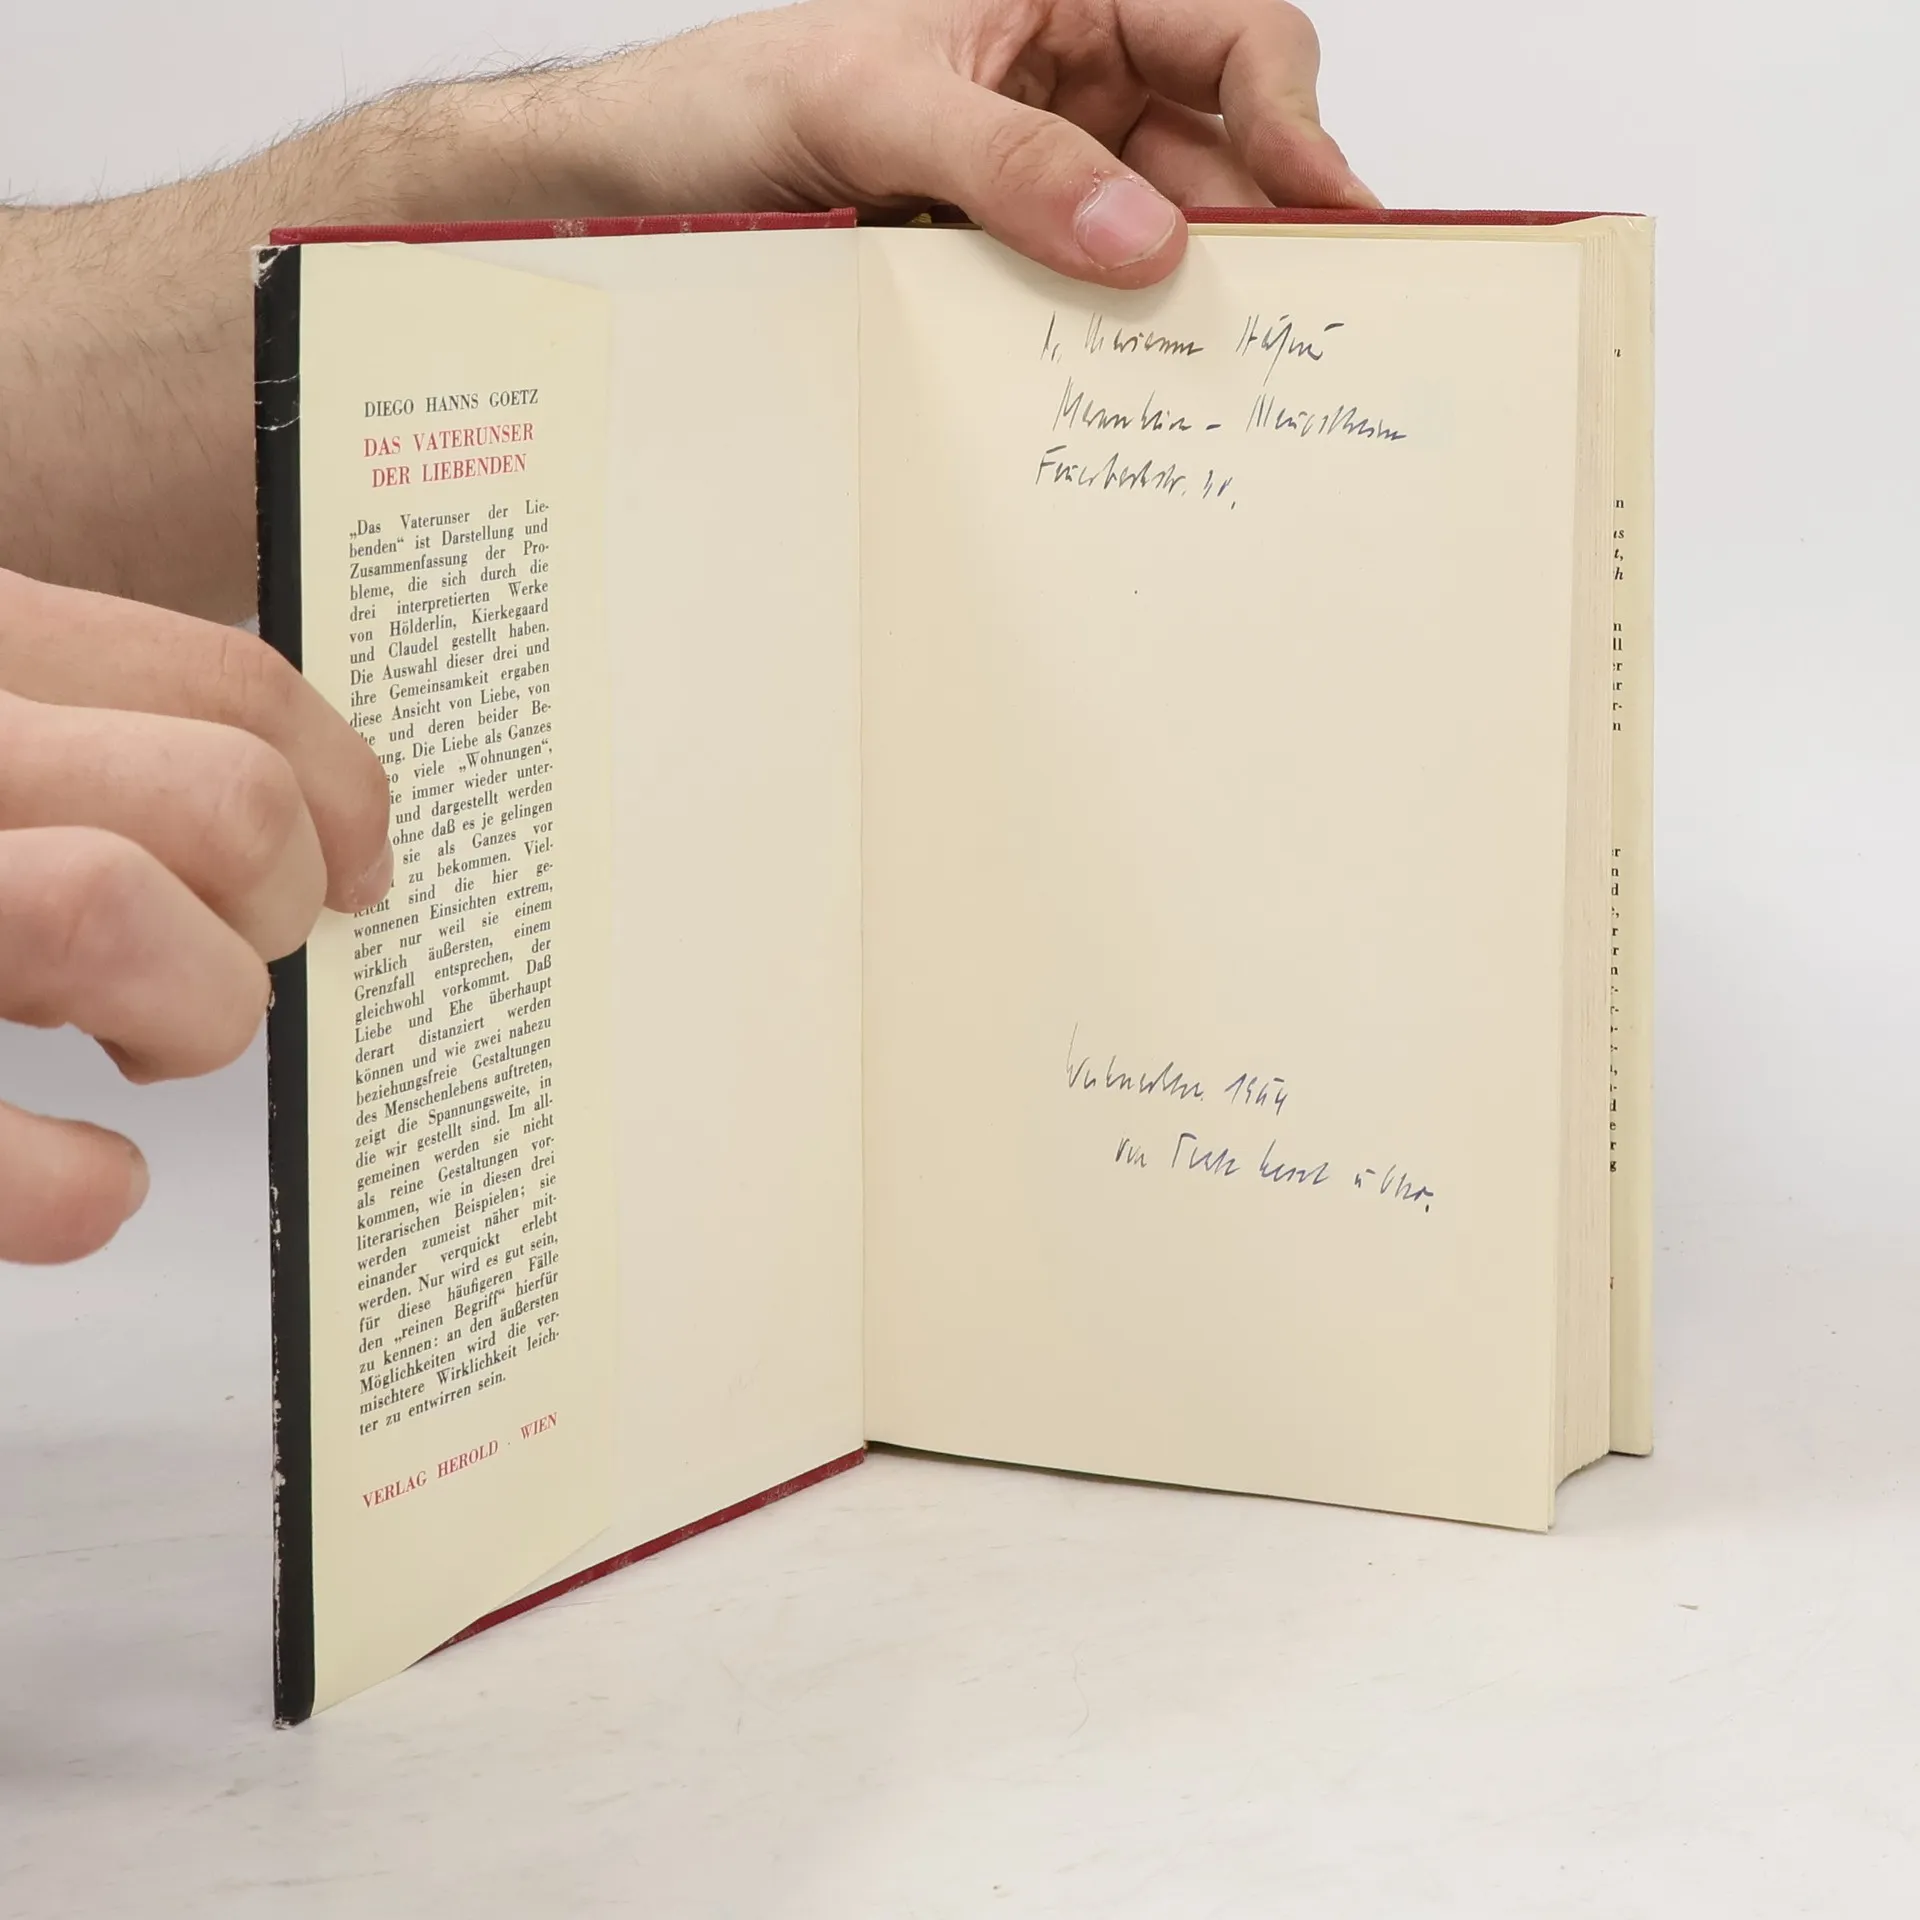 DIEGO HANNS GOETZ
DAS VATERUNSER
DER LIEBENDEN
„Das Vaterunser der Lie-
benden“ ist Darstellung und
Zusammenfassung der Pro-
bleme, die sich durch die
drei interpretierten Werke
von Hölderlin, Kierkegaard
und Claudel gestellt haben.
Die Auswahl dieser drei und
ihre Gemeinsamkeit ergaben
diese Ansicht von Liebe, von
und deren beider Be-
Die Liebe als Ganzes
so viele „Wohnungen“,
immer wieder unter-
und dargestellt werden
ohne daß es je gelingen
sie als Ganzes vor
zu bekommen. Viel-
leicht sind die hier ge-
wonnenen Einsichten extrem,
aber nur weil sie einem
wirklich äußersten, einem
Grenzfall entsprechen, der
gleichwohl vorkommt. Daß
Liebe und Ehe überhaupt
derart distanziert werden
können und wie zwei nahezu
beziehungsfreie Gestaltungen
des Menschenlebens auftreten,
zeigt die Spannungsweite, in
die wir gestellt sind. Im all-
gemeinen werden sie nicht
als reine Gestaltungen vor-
kommen, wie in diesen drei
literarischen Beispielen; sie
werden zumeist näher mit-
einander verquickt erlebt
werden. Nur wird es gut sein,
für diese häufigeren Fälle
den „reinen Begriff“ hierfür
zu kennen: an den äußersten
Möglichkeiten wird die ver-
mischtere Wirklichkeit leich-
ter zu entwirren sein.
VERLAG HEROLD · WIEN
Marianne
Feuerbachstr.
von